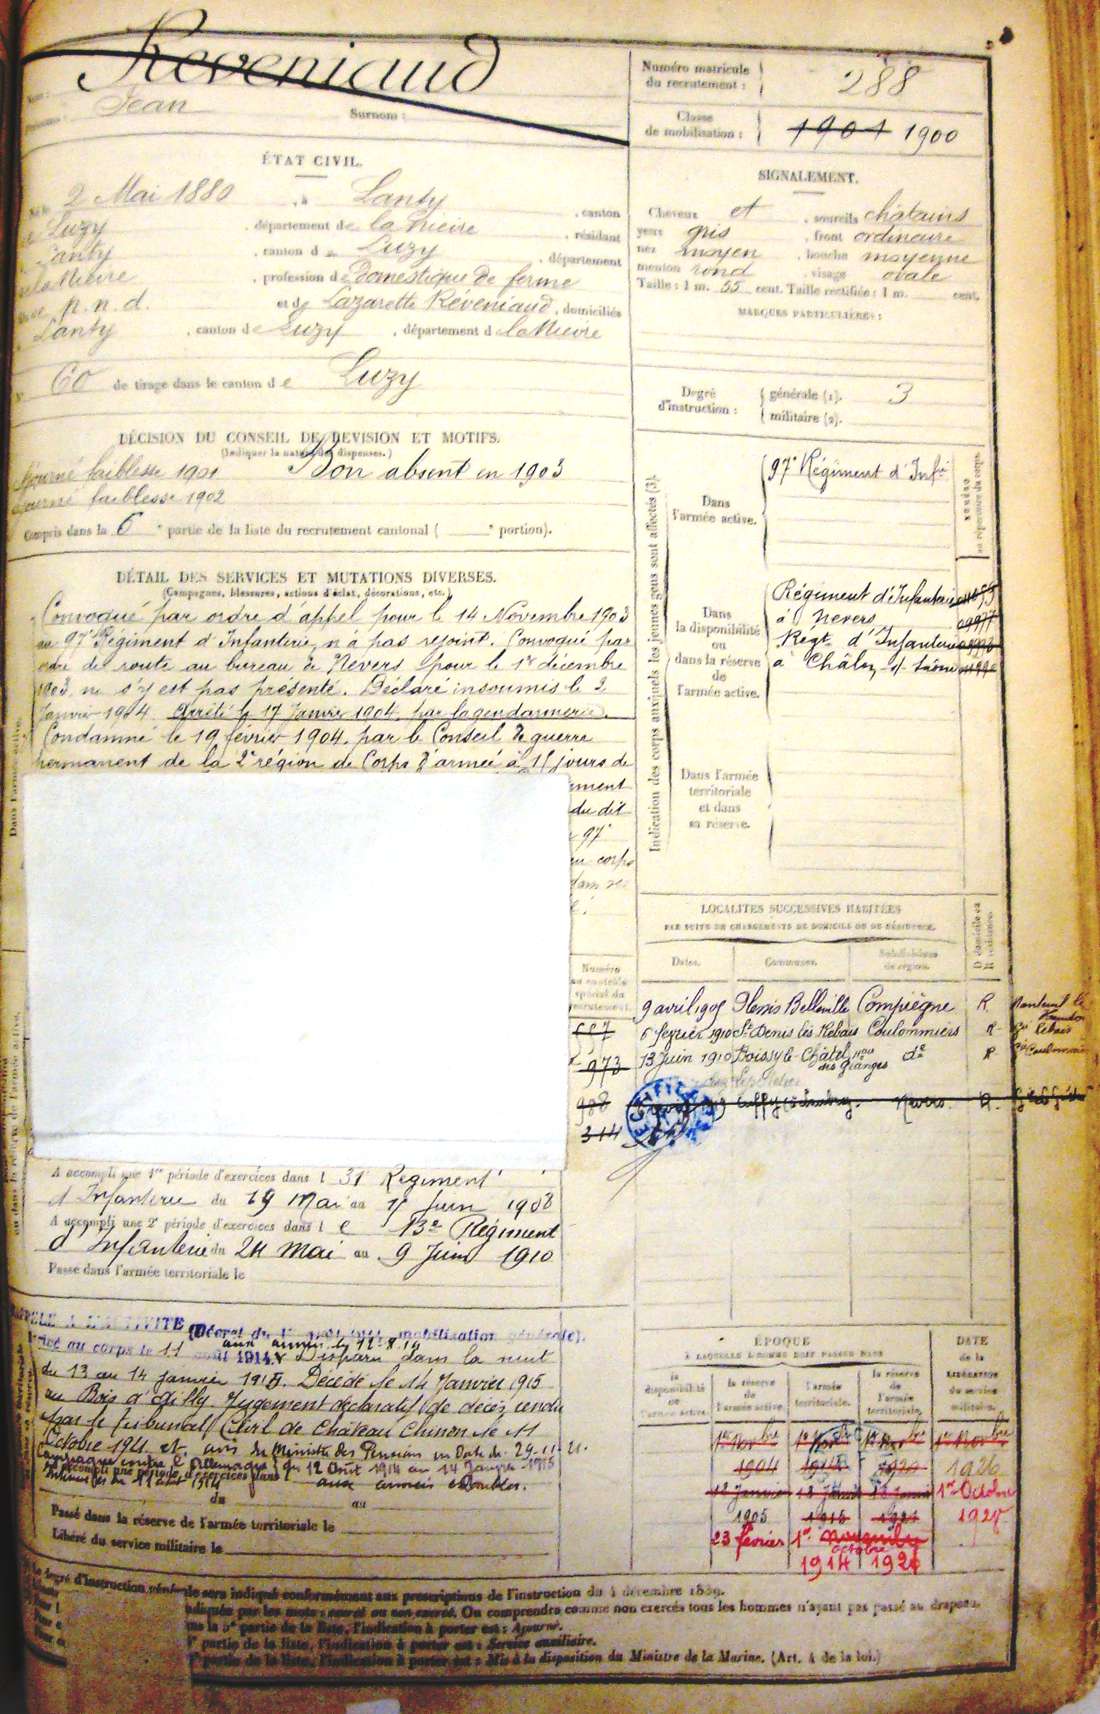 Reveniaud
Jean
Surnom :
Numéro matricule
du recrutement :
288
Classe
de mobilisation :
1901 1900
ÉTAT CIVIL.
2 Mai 1880, à Lanty, canton
Luzy, département de la Nièvre, résidant
Lanty, canton d Luzy, département
de la Nièvre, profession de Domestique de ferme
p. n. d. et de Lazarette Réveniaud, domiciliés
Lanty, canton de Luzy, département d la Nièvre
N° 60 de tirage dans le canton d e Luzy
SIGNALEMENT.
Cheveux et , sourcils châtains
yeux gris , front ordinaire
nez moyen , bouche moyenne
menton rond , visage ovale
Taille : 1 m. 55 cent. Taille rectifiée : 1 m. cent.
MARQUES PARTICULIÈRES :
Degré
d'instruction :
générale (1). 3
militaire (2).
DÉCISION DU CONSEIL DE REVISION ET MOTIFS.
(Indiquer la nature des dispenses.)
Ajourné faiblesse 1901 Bon absent en 1903
Ajourné faiblesse 1902
Compris dans la 6 e partie de la liste du recrutement cantonal ( e portion).
DÉTAIL DES SERVICES ET MUTATIONS DIVERSES.
(Campagnes, blessures, actions d'éclat, décorations, etc.)
Convoqué par ordre d'appel pour le 14 Novembre 1903
au 97e Régiment d'Infanterie, n'a pas rejoint. Convoqué par
ordre de route au bureau de Nevers pour le 1er décembre
1903, ne s'y est pas présenté. Déclaré insoumis le 2
Janvier 1904. Arrêté le 17 Janvier 1904, par la gendarmerie.
Condamné le 19 février 1904, par le Conseil de guerre
permanent de la 2e région de Corps d'armée à 15 jours de
ement
du dit
97e
au corps
Indication des corps auxquels les jeunes gens sont affectés (3).
Dans
l'armée active.
97e Régiment d'Infie
NUMÉRO
au répertoire du corps.
Dans
la disponibilité
ou
dans la réserve
de
l'armée active.
Régiment d'Infanterie
à Nevers
Regt d'Infanterie
à Châlon s/ Saône
Dans l'armée
territoriale
et dans
sa réserve.
LOCALITÉS SUCCESSIVES HABITÉES
PAR SUITE DE CHANGEMENTS DE DOMICILE OU DE RÉSIDENCE.
Dates.
Communes.
Subdivisions
de région.
D domicile ou
R résidence
9 avril 1905 Plessis Belleville Compiègne R. Nanteuil le
Haudoin
6 février 1910 St Denis lès Rebais Coulommiers R Rebais
13 Juin 1910 Boissy le Châtel do R Coulommiers
des Granges
Cuffy Nevers. R.
RECTIFICATION
Numéro
au contrôle
spécial du
recrutement.
973
988
314
A accompli une 1re période d'exercices dans l 31e Régiment
d'Infanterie du 19 Mai au Juin 1908
A accompli une 2e période d'exercices dans l e 13e Régiment
d'Infanterie du 24 Mai au 9 Juin 1910
Passé dans l'armée territoriale le
RAPPELÉ A L'ACTIVITÉ (Décret du 1er août 1914, mobilisation générale).
Arrivé au corps le 11 août 1914. aux armées le 12-8-14
Disparu dans la nuit
du 13 au 14 janvier 1915. Décédé le 14 Janvier 1915
au Bois d'Ailly. Jugement déclaratif de décès rendu
par le tribunal Civil de Château Chinon le 11
Octobre 1921 et avis du Ministre des Pensions en date du 29-11-21.
Campagne contre l'Allemagne du 12 Août 1914 au 14 Janvier 1915
A accompli une période d'exercices dans l
du au
Passé dans la réserve de l'armée territoriale le
Libéré du service militaire le
ÉPOQUE
À LAQUELLE L'HOMME DOIT PASSER DANS
la
disponibilité
de
l'armée active.
la réserve
de
l'armée active.
l'armée
territoriale.
la réserve
de
l'armée
territoriale.
DATE
de la
LIBÉRATION
du service
militaire.
1er Novbre 1er Novbre 1er Novbre 1er Novbre
1904 1914 1920 1926
1er Octobre
1905 1915 1921 1925
23 février 1er octobre
1914 192
Le degré d'instruction générale sera indiqué conformément aux prescriptions de l'instruction du 4 décembre 1889.
indiquée par les mots : exercé ou non exercé. On comprendra comme non exercés tous les hommes n'ayant pas passé au drapeau.
5e partie de la liste, l'indication à porter est : Ajourné.
partie de la liste, l'indication à porter est : Service auxiliaire.
partie de la liste, l'indication à porter est : Mis à la disposition du Ministre de la Marine. (Art. 4 de la loi.)